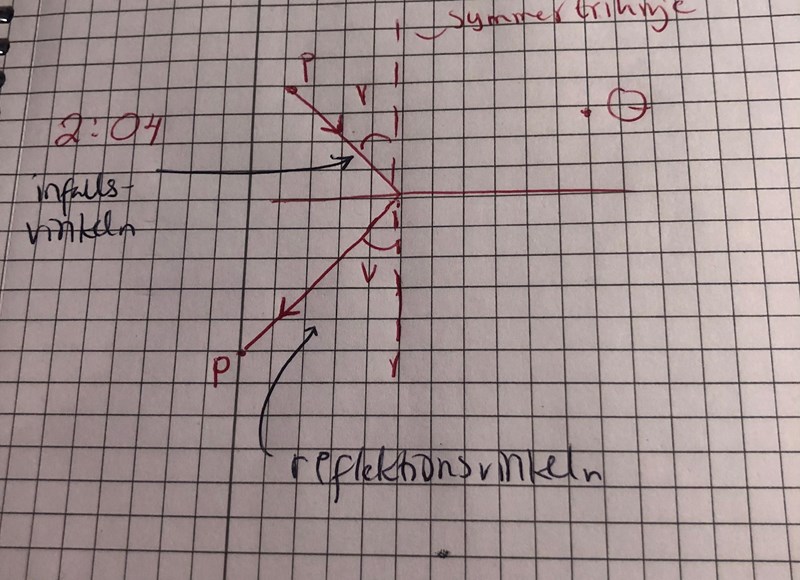 symmetrilinje
P
v
2:04
infalls-
vinkeln
v
P
reflektionsvinkeln